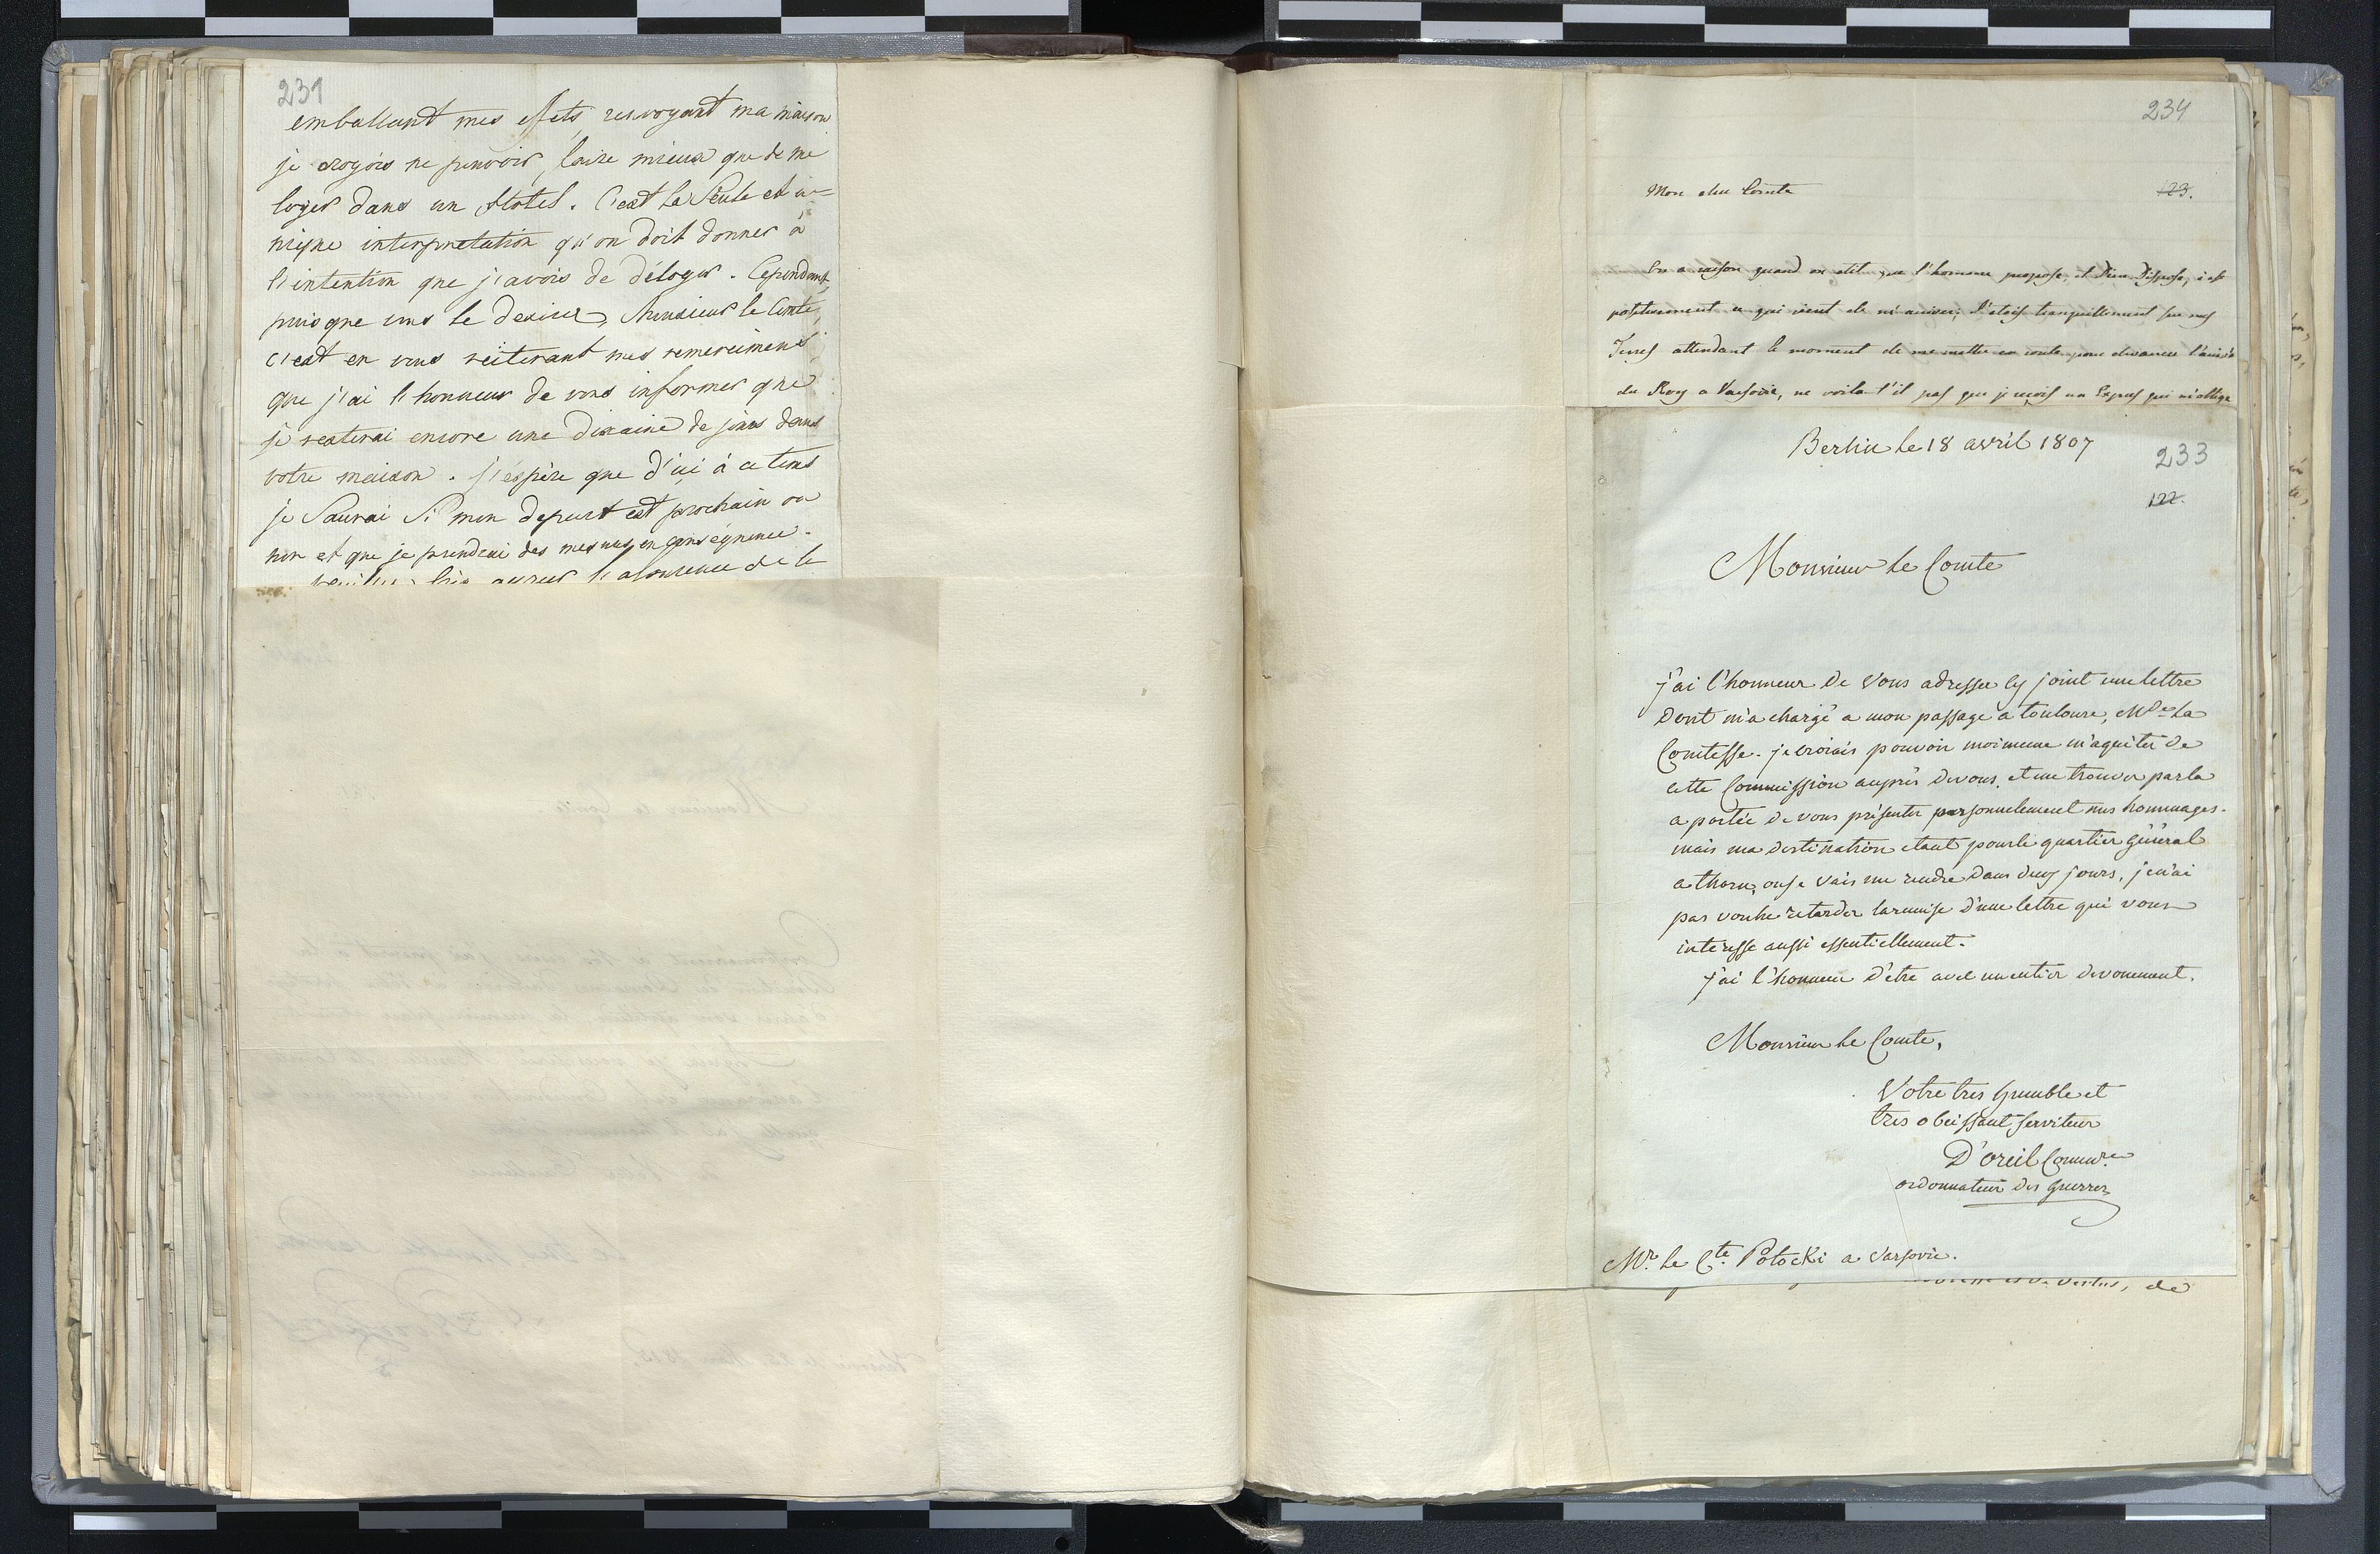 231
emballant mes effets, renvoyant ma maison
je croyois ne pouvoir faire mieux que de me
loger dans un Hotel. C'est la Seule et u-
nique interpretation qu'on doit donner à
l'intention que j'avois de déloger. Cependant,
puisque vous le desirez, Monsieur le Comte,
c'est en vous réiterant mes remercimens
que j'ai l'honneur de vous informer que
je resterai encore une dixaine de jours dans
votre maison. J'espère que d'ici à ce tems
je Saurai Si mon depart est prochain ou
non et que je prendrai des mesures en conséquence.
l'assurance de la
Monsieur le Comte.
234
Mon cher Comte
123.
On a raison quand on dit que l'homme propose, et Dieu Dispose, c'est
positivement ce qui vient de m'arriver; J'etois tranquillement sur mes
Terres attendant le moment de me mettre en route pour devancer l'arrivée
du Roy a Varsovie, ne voila t'il pas que je reçois un Exprés qui m'oblige
Berlin le 18 avril 1807
233
122.
Monsieur le Comte
j'ai l'honneur de Vous adresser cy joint une lettre
Dont m'a chargé a mon passage a toulouse, Mde La
Comtesse. je croiais pouvoir moimeme m'aquiter de
cette Commission auprès de vous, et me trouver par la
a portée de vous présenter personnelement mes hommages.
mais ma destination etant pour le quartier général
a thorn, ou je vais me rendre dans deux jours, je n'ai
pas voulu retarder la remise d'une lettre qui vous
interesse aussi essentiellement.
j'ai l'honneur d'etre avec un entier devouement.
Monsieur le Comte,
Votre tres humble et
tres obeissant serviteur
D'oreil Commre
ordonnateur des guerres
Mr. Le Cte. Potocki a Varsovie.
de